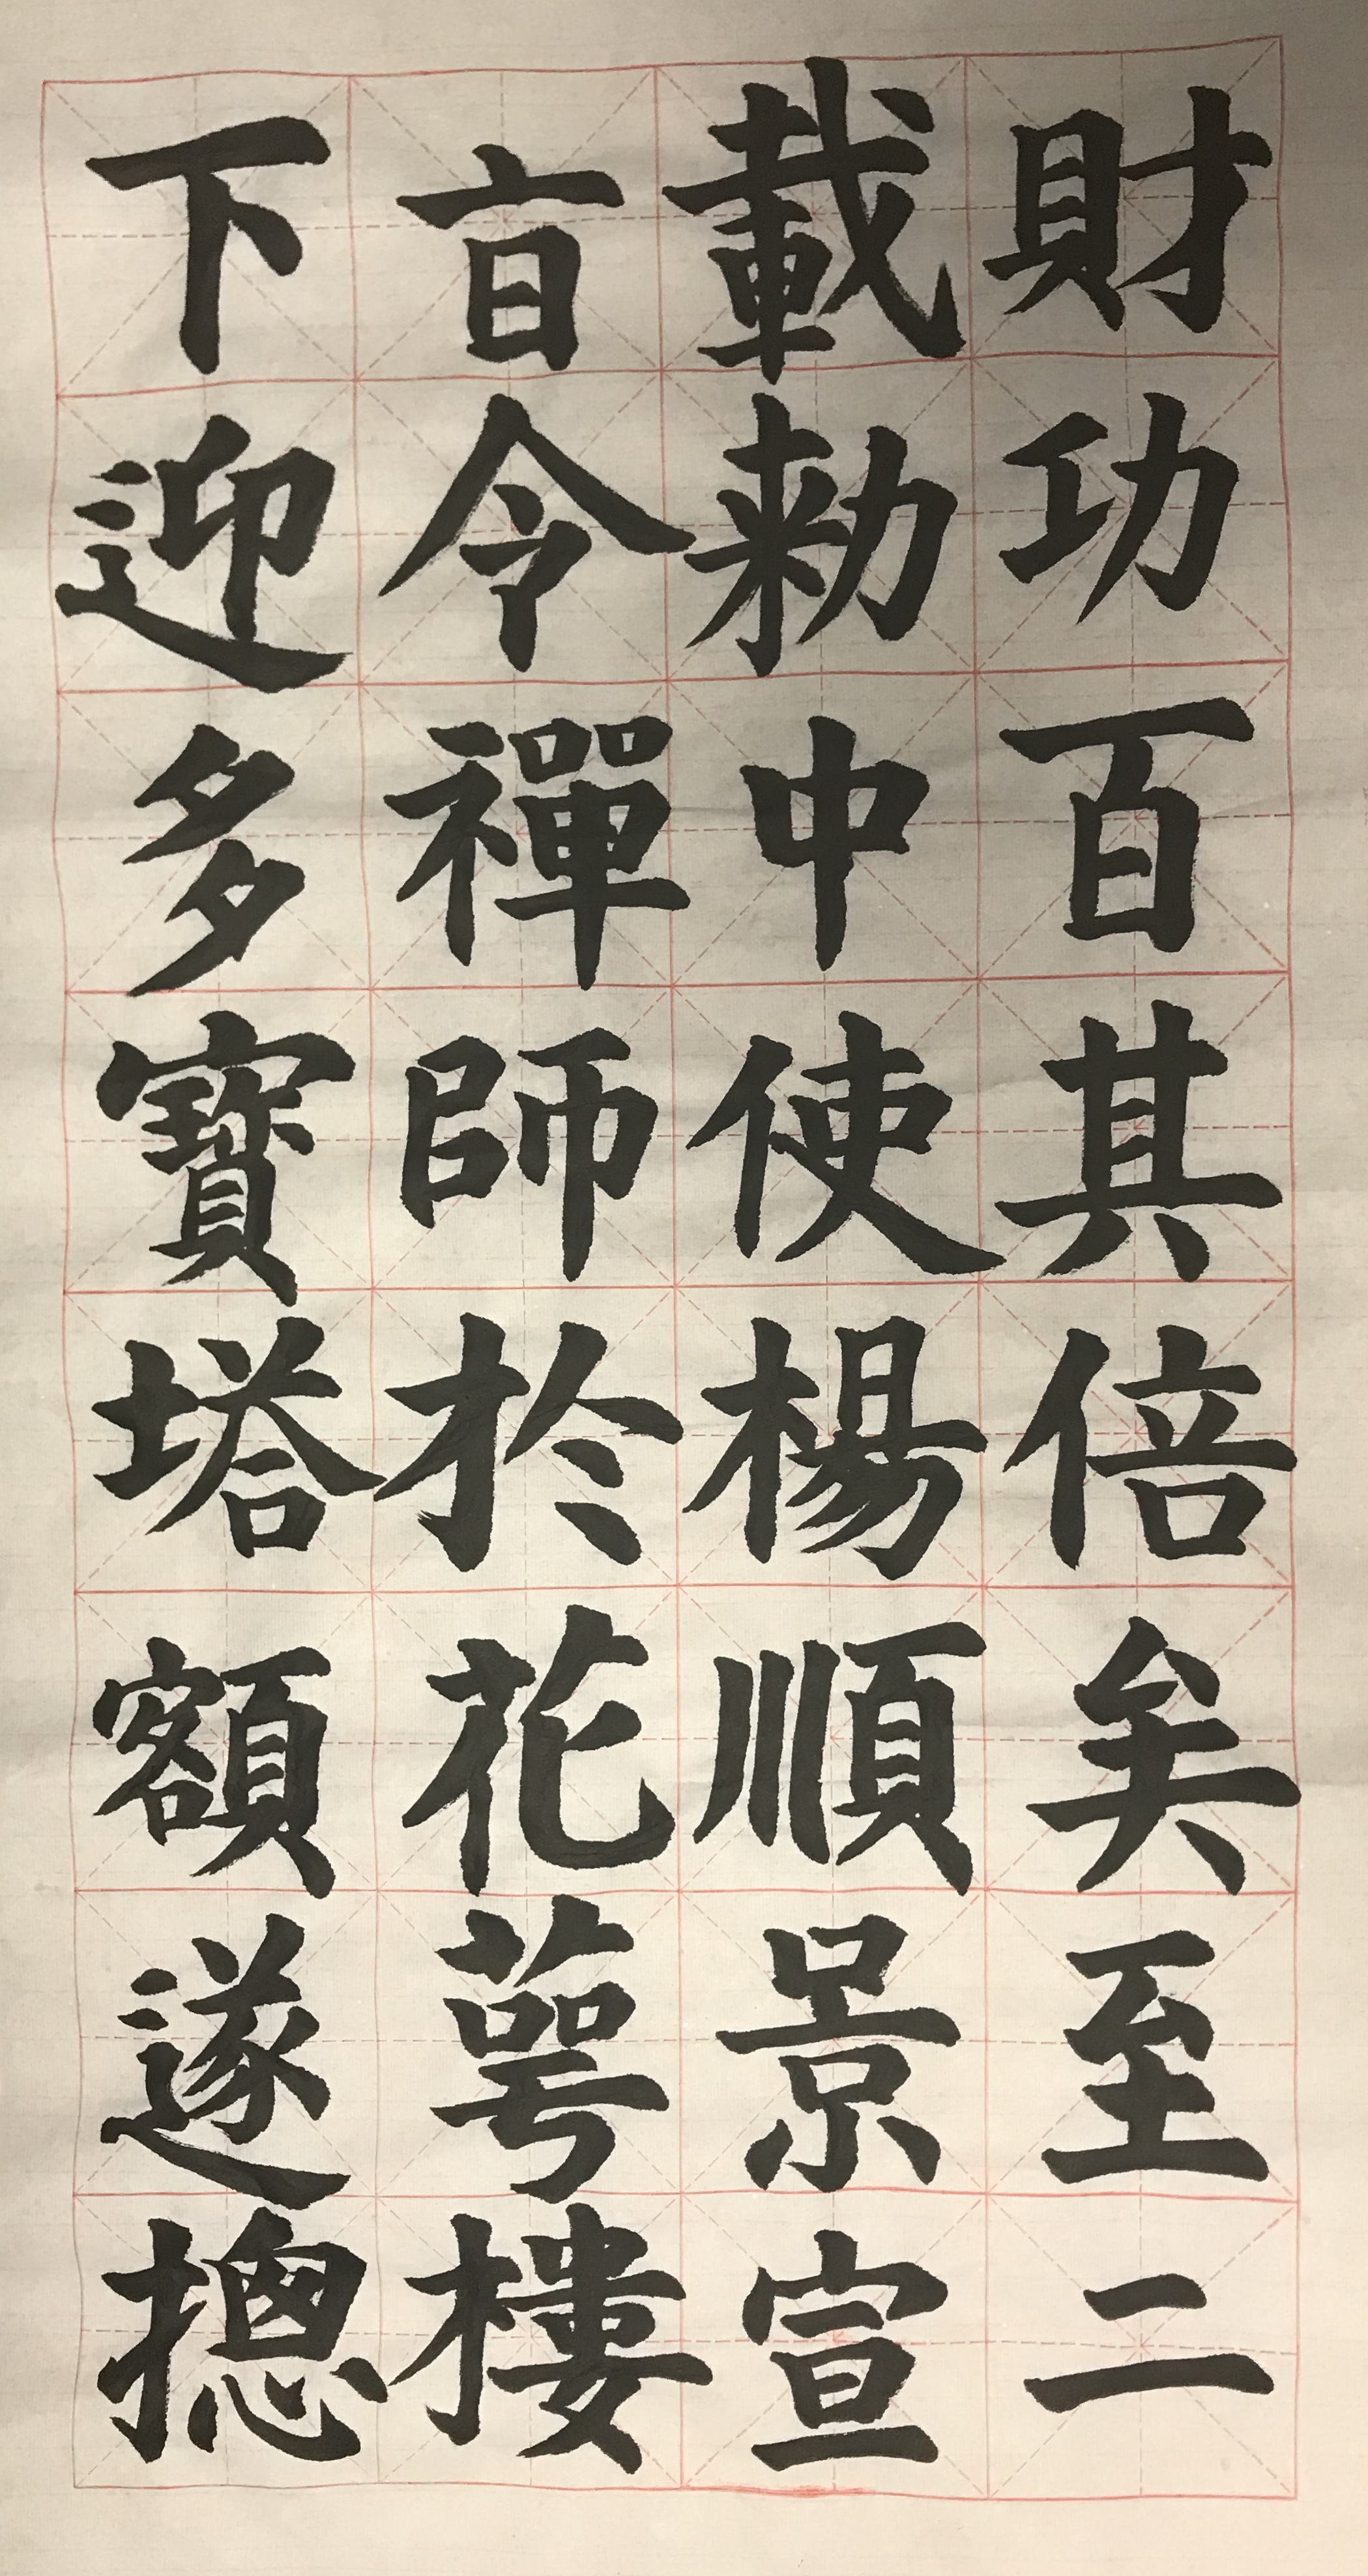 財功百其倍矣至二
載勑中使楊順景宣
旨令禪師於花萼樓
下迎多寶塔額遂摠